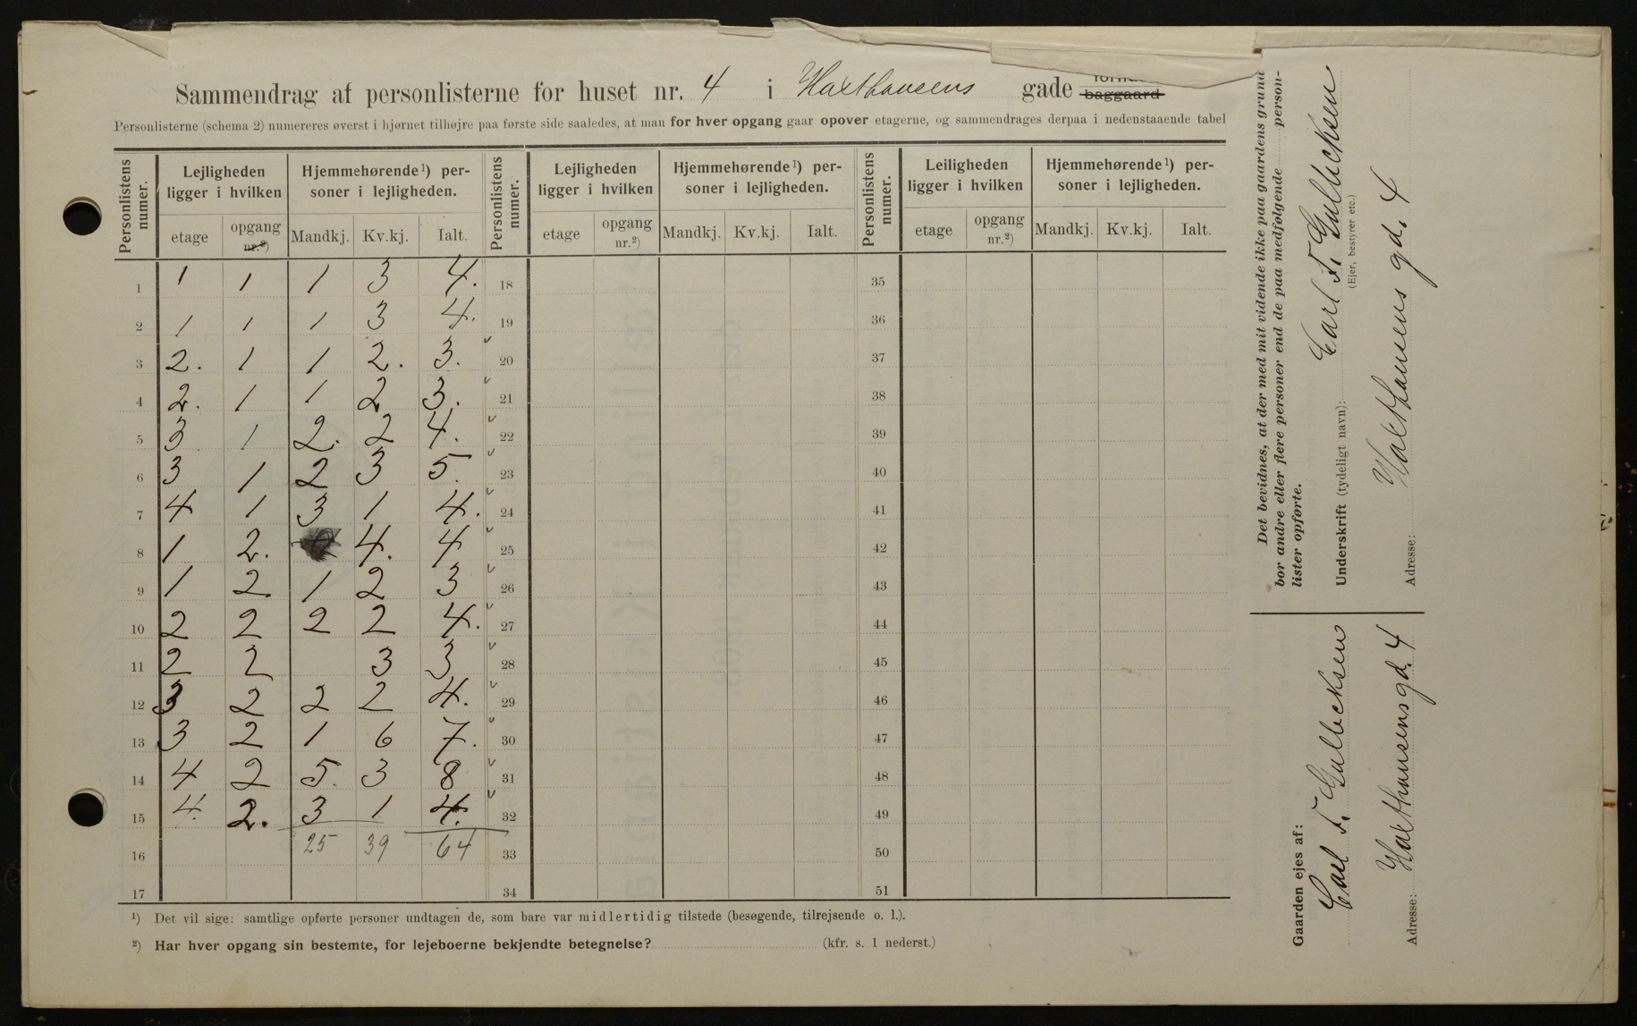 Sammendrag af personlisterne for huset nr. 4 i Haxthausens gade baggaard
Personlisterne (schema 2) numereres øverst i hjørnet tilhøjre paa første side saaledes, at man for hver opgang gaar opover etagerne, og sammendrages derpaa i nedenstaaende tabel
Personlistens numer. Lejligheden ligger i hvilken Hjemmehørende ¹) personer i lejligheden. Personlistens numer. Lejligheden ligger i hvilken Hjemmehørende ¹) personer i lejligheden. Personlistens numer. Leiligheden ligger i hvilken Hjemmehørende ¹) personer i lejligheden.
etage opgang nr.²) Mandkj. Kv.kj. Ialt. etage opgang nr.²) Mandkj. Kv.kj. Ialt. etage opgang nr.²) Mandkj. Kv.kj. Ialt.
1 1 1 1 3 4. 18 35
2 1 1 1 3 4. 19 36
3 2. 1 1 2. 3. 20 37
4 2. 1 1 2 3. 21 38
5 3 1 2. 2 4. 22 39
6 3 1 2 3 5. 23 40
7 4 1 3 1 4. 24 41
8 1 2. 4. 4 25 42
9 1 2 1 2 3 26 43
10 2 2 2 2 4. 27 44
11 2 2 3 3 28 45
12 3 2 2 2 4. 29 46
13 3 2 1 6 7. 30 47
14 4 2 5. 3 8 31 48
15 4. 2. 3 1 4. 32 49
16 25 39 64 33 50
17 34 51
¹) Det vil sige: samtlige opførte personer undtagen de, som bare var midlertidig tilstede (besøgende, tilrejsende o. l.).
²) Har hver opgang sin bestemte, for lejeboerne bekjendte betegnelse? (kfr. s. 1 nederst.)
Det bevidnes, at der med mit vidende ikke paa gaardens grund
bor andre eller flere personer end de paa medfølgende person-
lister opførte.
Underskrift (tydeligt navn): Carl F. Gulbeksen
(Ejer, bestyrer etc.)
Adresse: Haxthausens gd. 4
Gaarden ejes af:
Carl F. Gulbeksen
Adresse: Haxthausens gd. 4